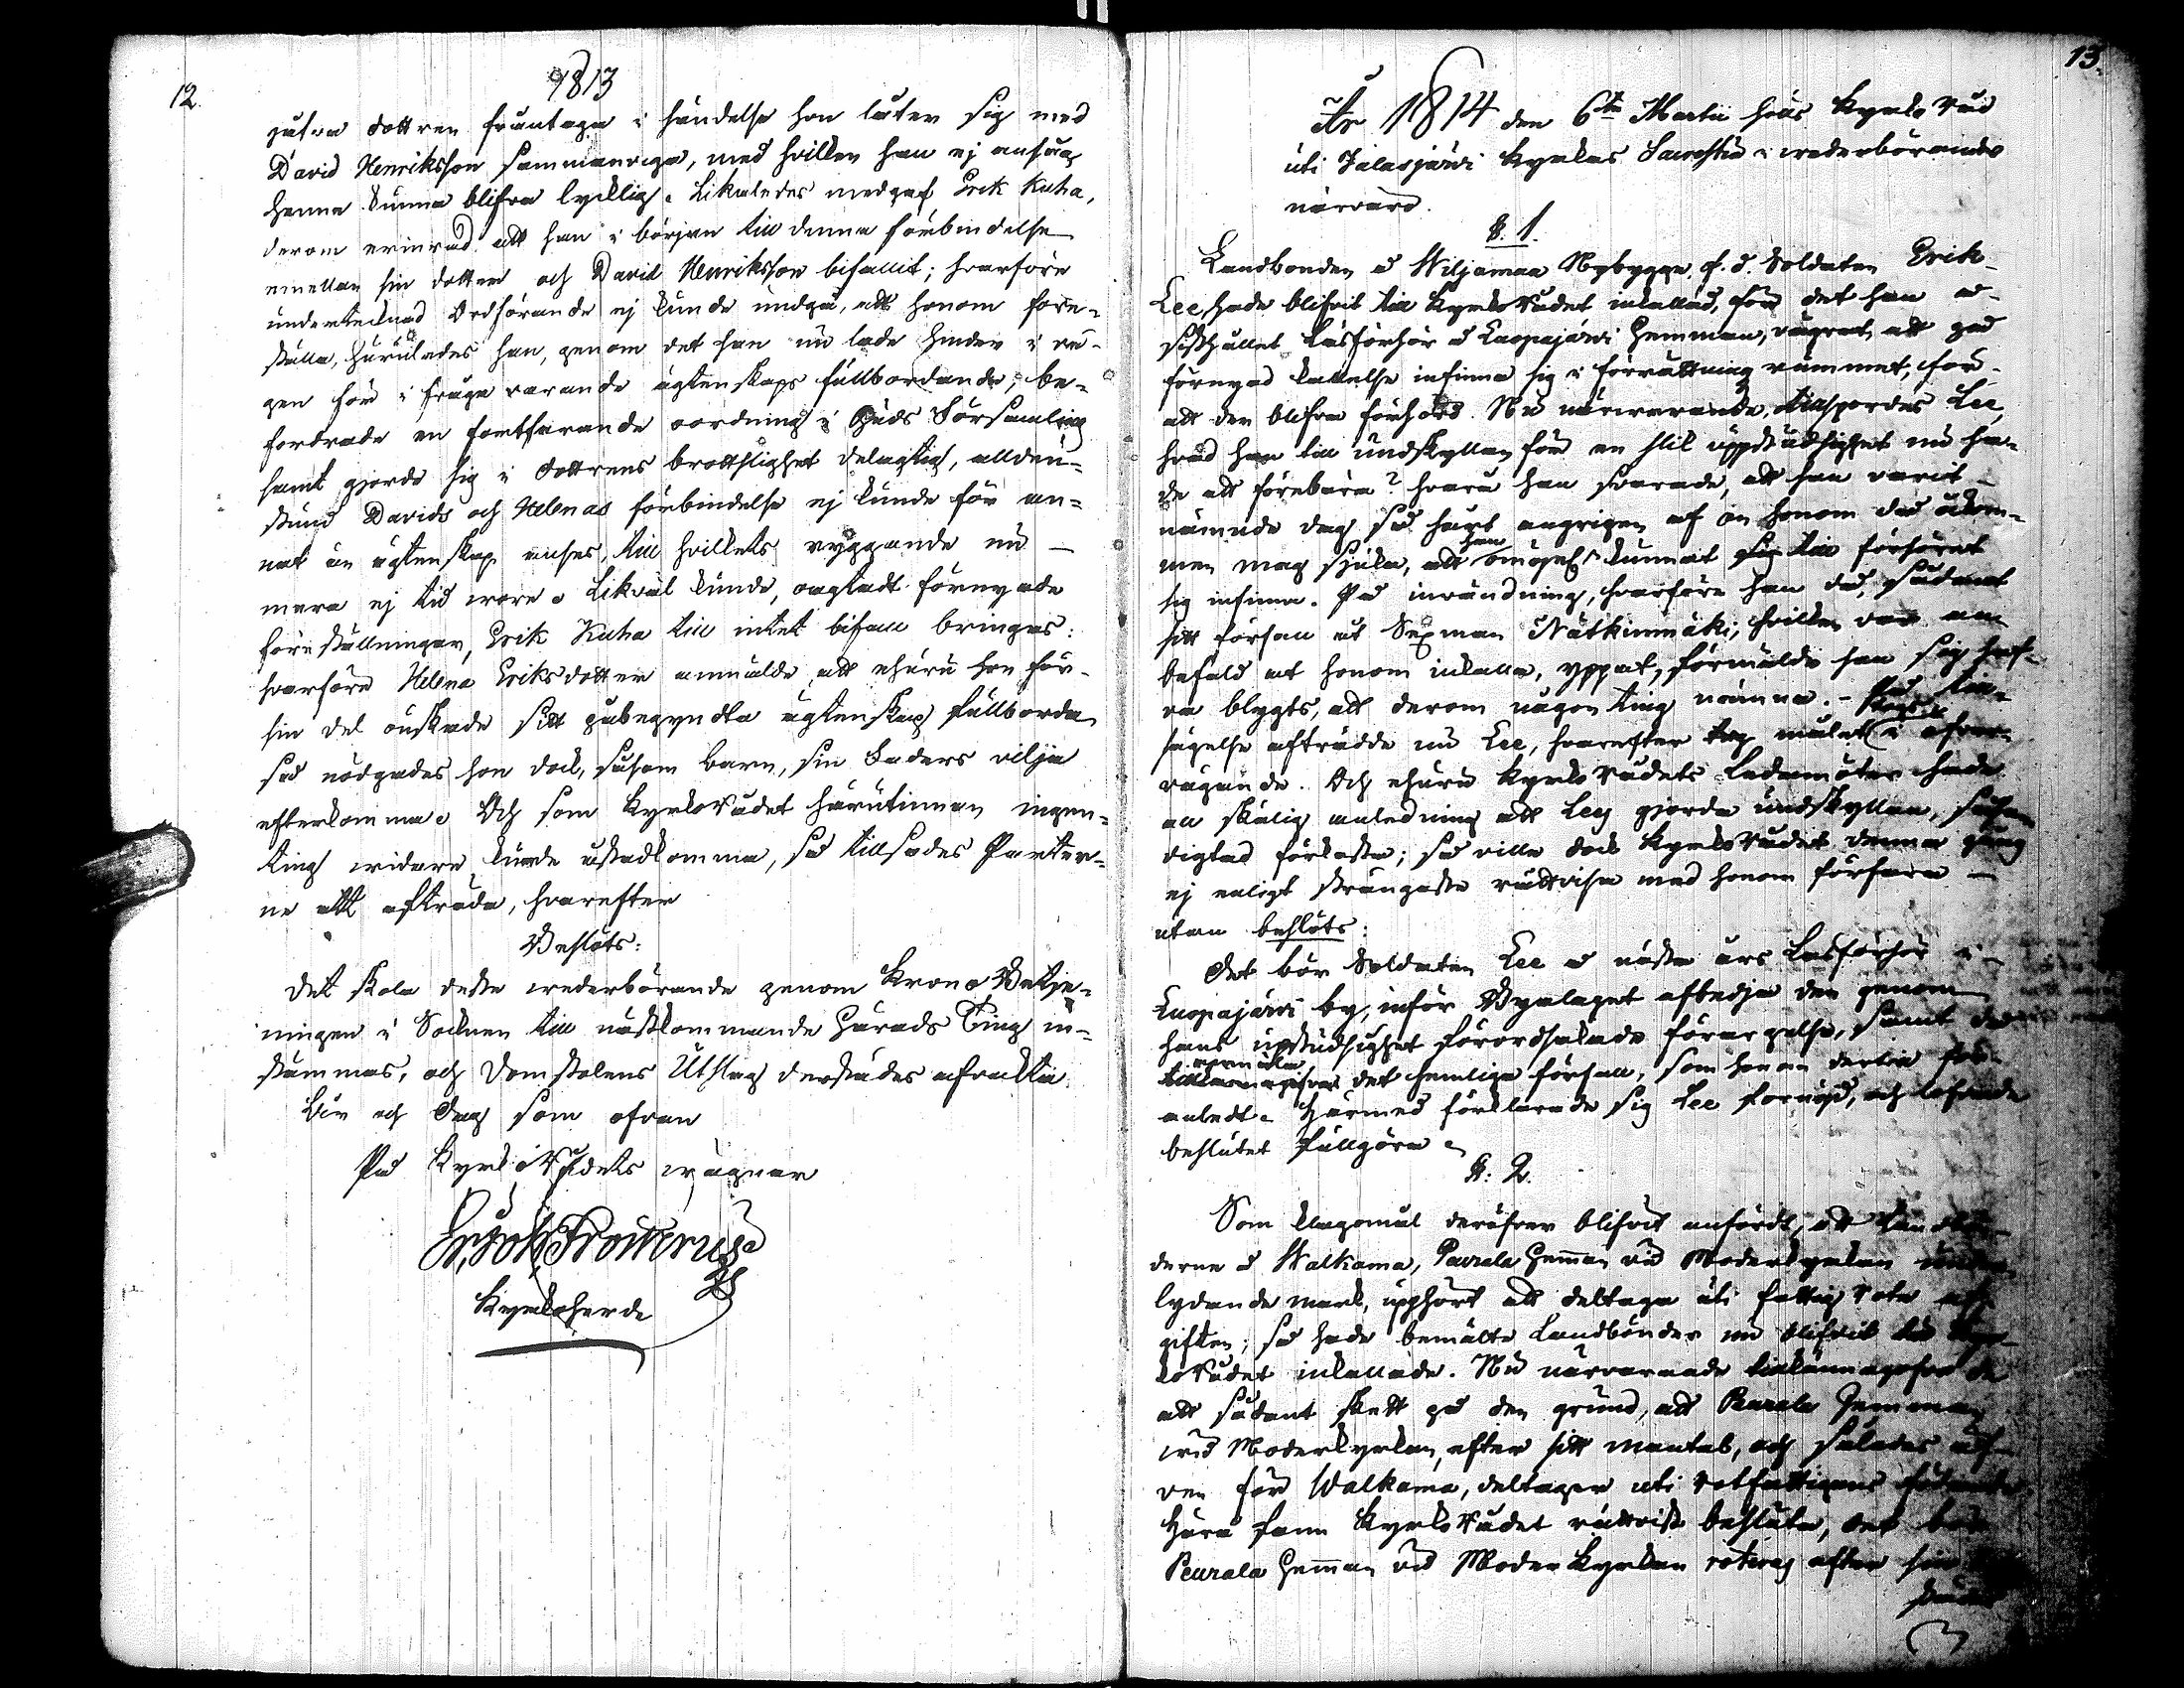 12.
1813
gåfva dottren fråntaga i händelse hon låter sig med
David Henriksson sammanviga, med hvilken han ej ansåg
henne kunna blifva lycklig. Likaledes medgaf Erik Kuha,
derom erinrad att han i början till denna förbindelse
emellan sin dotter och David Henriksson bifallit; hvarföre
undertecknad Ordförande ej kunde undgå, att honom före-
ställa, huruledes han, genom det han nu lade hinder i vä-
gen för i fråga varande ägtenskaps fullbordande, be-
fordrade en fortfarande oordning i Guds Församling
samt gjorde sig i dottrens brottslighet delagtig, alldeu-
stund Davids och Helenas förbindelse ej kunde för an-
nat än ägtenskap anses, till hvillkets ryggande nu
mera ej tid wore. Likväl kunde, oagtadt förnyade
föreställningar, Erik Kuha till intet bifall bringas:
hvarföre Helena Eriksdotter anmälde, att ehuru hon för
sin del önskade sitt påbegyndta ägtenskap fullborda
så nödgades hon dock, såsom barn, sin Faders vilja
efterkomma. Och som KyrkoRådet härutinnan ingen-
ting widare kunde åstadkomma, så tillsades Parter-
ne att afträda, hvarefter
Beslöts:
Det skola desse wederbörande genom Krono Betje-
ningen i Socknen till nästkommande Härads Ting in-
stämmas, och Domstolens Utslag derstädes afvakta.
År och Dag som ofvan
På KyrkoRådets wägnar
Frosterus
Kyrkoherde
13.
År 1814 den 6te Martii hölls KyrkoRåd
uti Jalasjärvi Kyrkas Sacristia i wederbörandes
närvaro.
§. 1.
Landbonden å Wiljamaa Nybygge, f. d. Soldaten Erik
Lee, hade blifvit till KyrkoRådet inkallad, för det han å
sisthållet Läsförhör å Luopajärvi Hemman, vägrat att på
förnyad kallelse infinna sig i förrättning rummet, för
att der blifva förhörd. Nu närwarande, tillspordes Lee,
hvad han till undskyllan för en slik uppstudsighet nu ha-
de att förebära? hvarå han svarade, att han varit
nämnde dag så hårt angripen af en honom då åkom-
men mag sjuka, att han omöjel. kunnat till förhöret
sig infinna. På inwändning, hvarföre han då, sådant
sitt förfall åt Sexman Nätkinmäki, hvilken var an-
befald att honom inkalla, yppat, förmälde han sig haf-
va blygts, att derom någon ting nämna. På till-
sägelse afträdde nu Lee, hvarefter togs målet i öfver-
vägande. Och ehuru KyrkoRådets Ledamöter hade
all skälig anledning att Lees gjorda undskyllan, såsom
digtad förkasta; så ville dock KyrkoRådet denna gång
ej enligt strängaste rättvisa med honom förfara
utan beslöts:
Det bör Soldaten Lee å nästa års Läsförhör i
Luopajärvi by, inför Byalaget afbedja den genom
hans uppstudsighet förordsakade förargelse, samt
det hemliga förfall, som honom dertill för-
anledt. Härmed förklarade sig Lee förnöjd, och lofvade
beslutet fullgöra.
§. 2.
Som klagomål deröfver blifvit anfördt, att Landbön-
derne å Walkama, Peurala Hemman vid Moderkyrkan under-
lydande mark, upphört att deltaga uti fattig Rote af-
giften; så hade bemälte Landbönder nu blifvit till Kyr-
koRådet inkallade. Nu närvarande tillkännagåfvo de
att sådant skett på den grund, att Peurala Hemman
wid Moderkyrkan, efter sitt mantal, och således äf-
ven för Walkama, deltager uti rotfattigans
Härå fann KyrkoRådet rättvist besluta, det bör
Peurala Hemman vid ModerKyrkan roteras efter sin